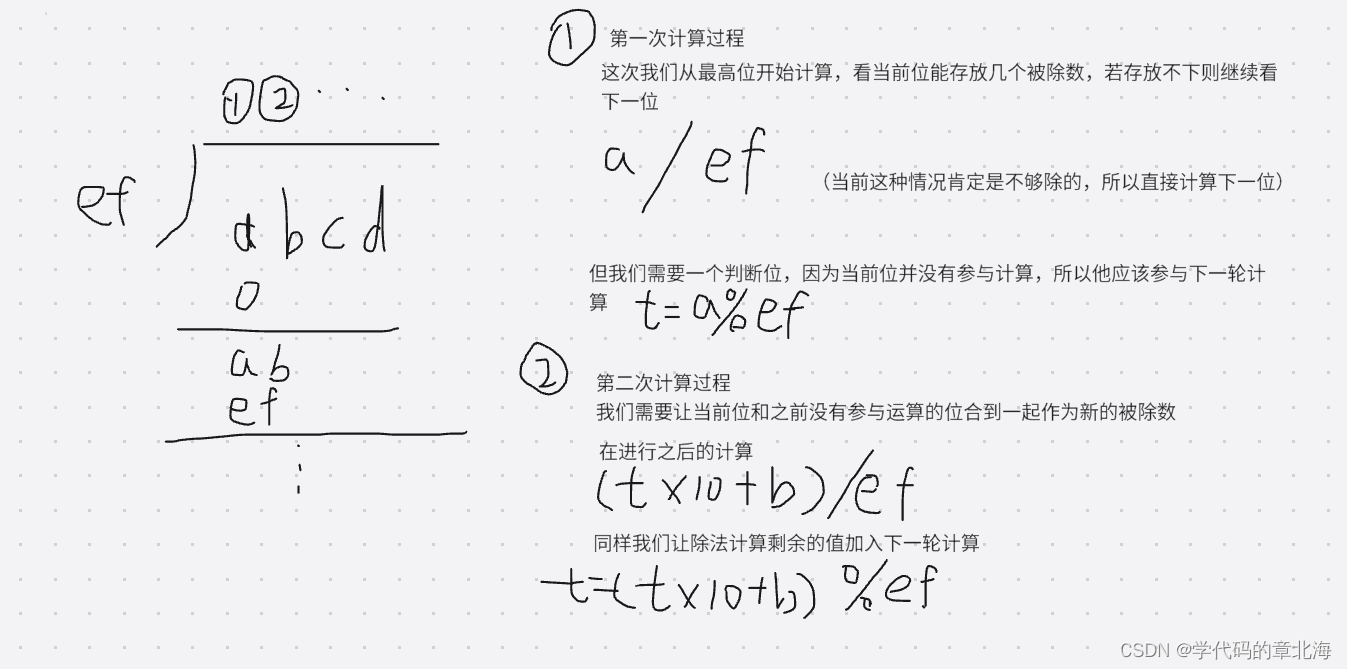 ① ② · · ·
ef
abcd
0
ab
ef
① 第一次计算过程
这次我们从最高位开始计算，看当前位能存放几个被除数，若存放不下则继续看
下一位
a / ef （当前这种情况肯定是不够除的，所以直接计算下一位）
但我们需要一个判断位，因为当前位并没有参与计算，所以他应该参与下一轮计
算 t=a%ef
② 第二次计算过程
我们需要让当前位和之前没有参与运算的位合到一起作为新的被除数
在进行之后的计算
(t×10+b)/ef
同样我们让除法计算剩余的值加入下一轮计算
t=(t×10+b)%ef
CSDN @学代码的章北海